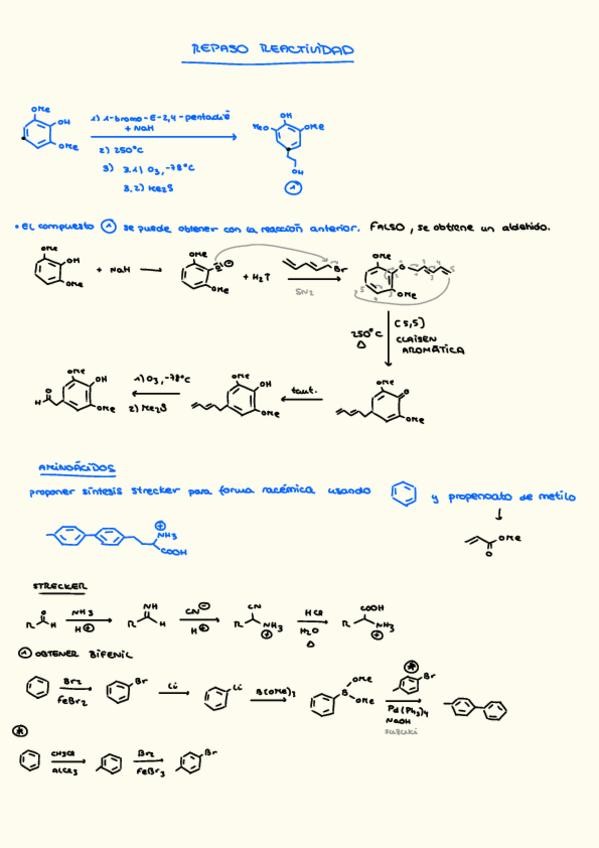 REPASO REACTIVIDAD
OMe
OH
OMe
1) 1-bromo-E-2,4-pentadiè
+ NaH
2) 250°C
3) 3.1) O3, -78°C
3.2) Me2S
OH
MeO
OMe
OH
1
• el compuesto 1 se puede obtener con la reacción anterior. FALSO, se obtiene un aldehído.
OMe
OH
OMe
+ NaH
OMe
OMe
+ H2↑
Br
SN2
OMe
O
OMe
250°C
Δ
(5,5)
CLAISEN
AROMÁTICA
OMe
O
OMe
taut.
OMe
OH
OMe
1) O3, -78°C
2) Me2S
OMe
OH
OMe
O
H
AMINOÁCIDOS
proponer síntesis strecker para forma racémica usando y propenoato de metilo
NH3
COOH
OMe
O
STRECKER
R O H
NH3
H+
NH
R H
CN-
H+
CN
R NH3
HCl
H2O
Δ
COOH
R NH3
1 OBTENER BIFENIL
Br2
FeBr2
Br
Li
Li
B(OMe)3
OMe
B
OMe
*
Br
Pd(Ph3)4
NaOH
suzuki
*
CH3Cl
AlCl3
Br2
FeBr3
Br